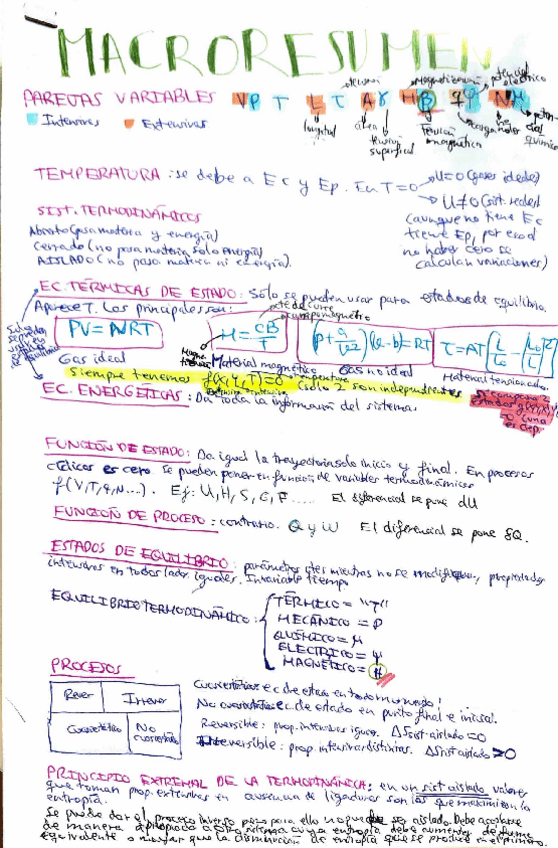 MACRORESUMEN
PAREJAS VARIABLES VP T L τ A γ H B q φ N μ
tensión magnetización potencial eléctrico
Intensivas Extensivas
longitud área tensión superficial tensión magnética carga potencial químico
TEMPERATURA: se debe a Ec y Ep. En T=0 → U=0 (gases ideales)
→ U≠0 (sist. reales)
(aunque no tiene Ec
tiene Ep, por eso al
no haber cero se
calculan variaciones)
SIST. TERMODINÁMICOS
Abierto (pasa materia y energía)
Cerrado (no pasa materia, solo energía)
AISLADO (no pasa materia ni energía).
EC. TÉRMICAS DE ESTADO: Sólo se pueden usar para estados de equilibrio.
Aparece T. Las principales son: cte de curie campo magnético
PV = NRT M = CB/T (P + a/v²)(v-b) = RT τ = AT[L/L₀ - (L₀/L)²]
Gas ideal Material magnético Gas no ideal Material tensionado.
Siempre tenemos f(x,y,T)=0 Solo 2 son independientes
EC. ENERGÉTICAS: Da toda la información del sistema.
FUNCIÓN DE ESTADO: Da igual la trayectoria solo inicio y final. En procesos
cíclicos es cero se pueden poner en función de variables termodinámicas
f(V,T,q,N...). Ej: U, H, S, G, F ..... El diferencial se pone dU
FUNCIÓN DE PROCESO: contrario. Q y W El diferencial se pone δQ.
ESTADOS DE EQUILIBRIO: parámetros ctes mientras no se modifique, propiedades
intensivas en todos lados iguales. Invariable tiempo
EQUILIBRIO TERMODINÁMICO:
TÉRMICO = "T"
MECÁNICO = P
QUÍMICO = μ
ELECTRICO = φ
MAGNÉTICO = H
PROCESOS
Rever Irrever
Cuasiestático No cuasiestático
Cuasiestático: ec de estado en todo momento!
No cuasiestático: ec de estado en punto final e inicial.
Reversible: prop. intensivas iguales. ΔSsist aislado = 0
Irreversible: prop. intensivas distintas. ΔSsist aislado > 0
PRINCIPIO EXTREMAL DE LA TERMODINÁMICA: en un sist aislado valores
que toman prop. extensivas en ausencia de ligaduras son los que maximizan la
entropía.
Se puede dar el proceso inverso pero para ello no puede ser aislado. Debe acoplarse
de manera apropiada a otro sistema cuya entropía debe aumentar de forma
equivalente o mayor que la disminución de entropía que se produce en el primero.